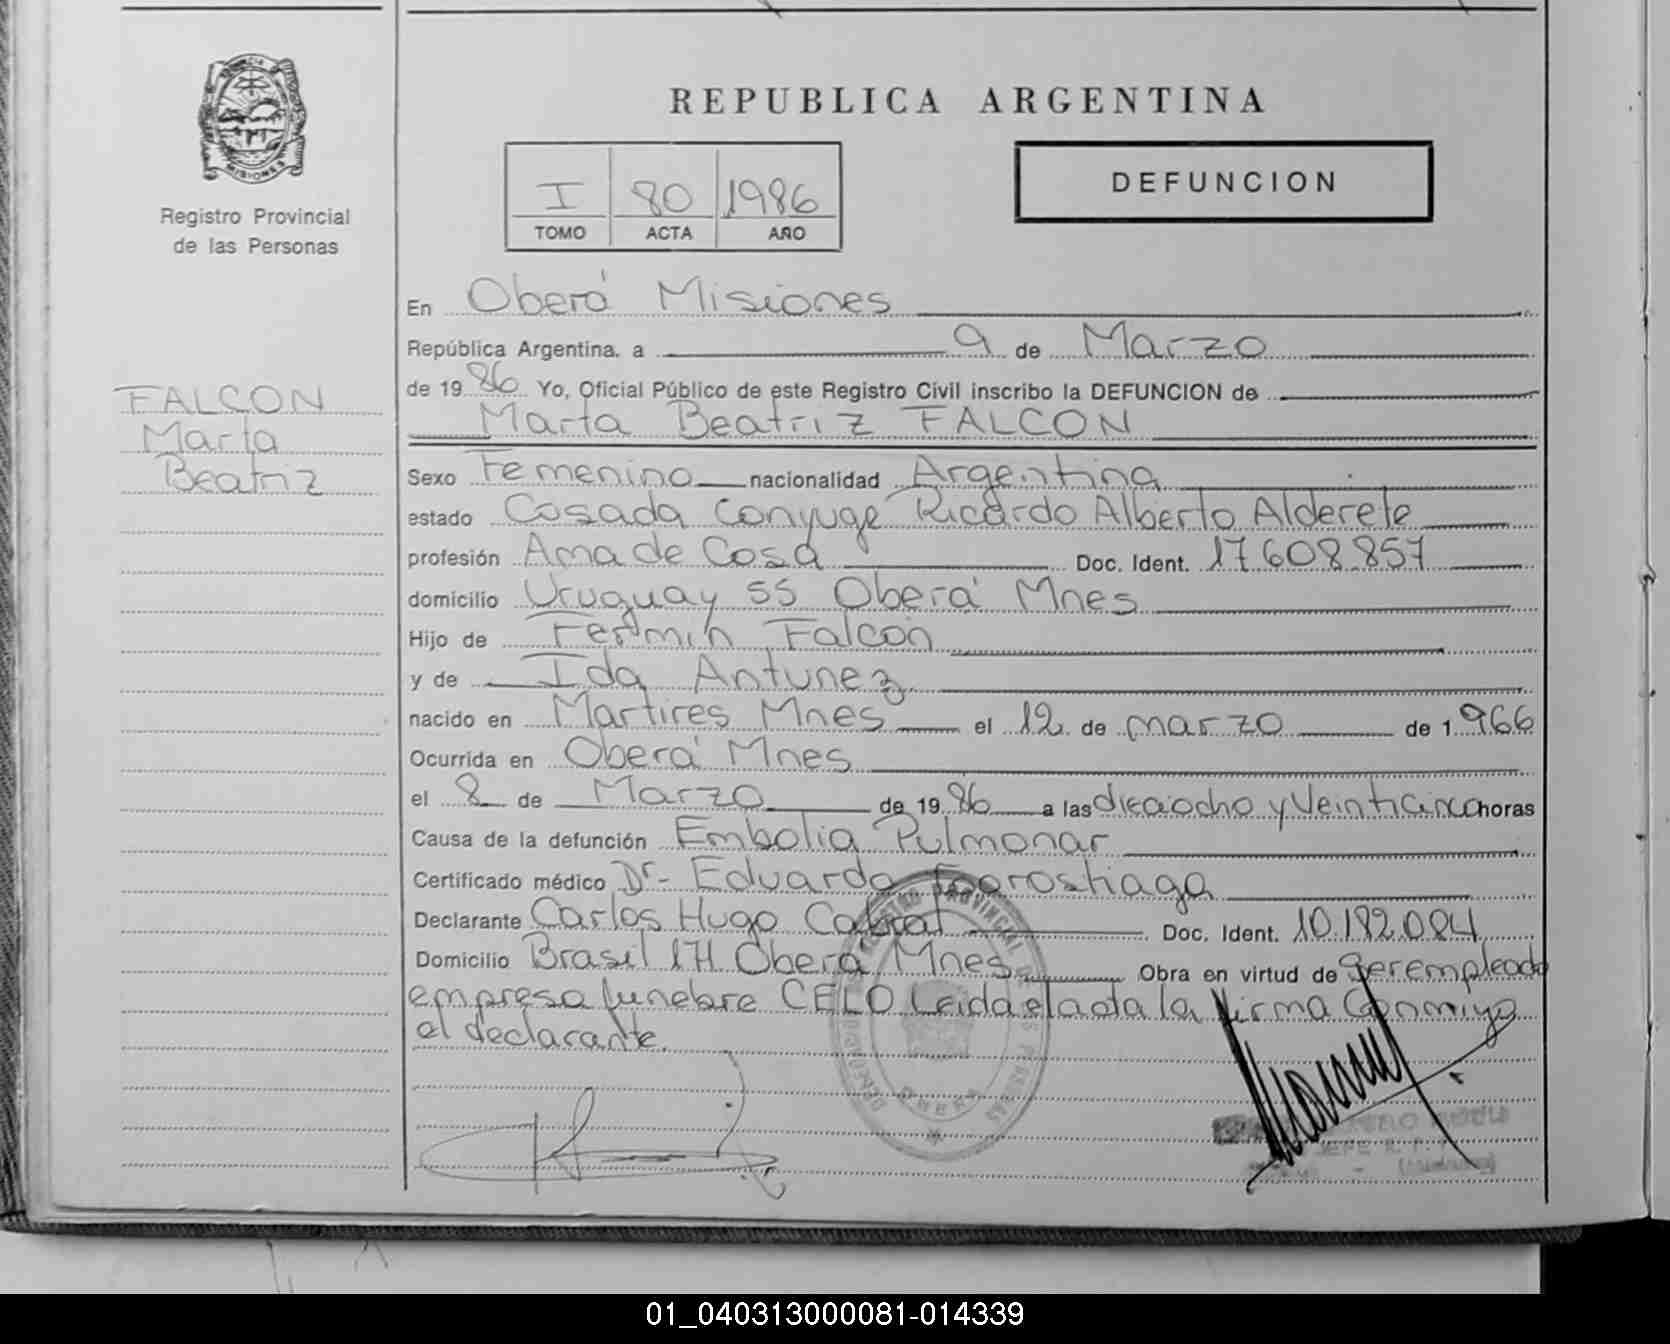 REPUBLICA ARGENTINA
MISIONES
Registro Provincial
de las Personas
I 80 1986
TOMO ACTA AÑO
DEFUNCION
FALCON
Marta
Beatriz
En Oberá Misiones
República Argentina, a 9 de Marzo
de 1986 Yo, Oficial Público de este Registro Civil inscribo la DEFUNCION de
Marta Beatriz FALCON
Sexo Femenino nacionalidad Argentina
estado Casada Conyuge Ricardo Alberto Alderete
profesión Ama de Casa Doc. Ident. 17.608.857
domicilio Uruguay 55 Oberá Mnes
Hijo de Fermin Falcon
y de Ida Antunez
nacido en Martires Mnes el 12 de marzo de 1966
Ocurrida en Oberá Mnes
el 8 de Marzo de 1986 a las dieciocho y veinticinco horas
Causa de la defunción Embolia Pulmonar
Certificado médico Dr. Eduardo
Declarante Carlos Hugo Cabral Doc. Ident. 10.182.084
Domicilio Brasil 171 Oberá Mnes Obra en virtud de ser empleado
empresa funebre CELO Leida el acta la firma Conmigo
el declarante.
01_040313000081-014339